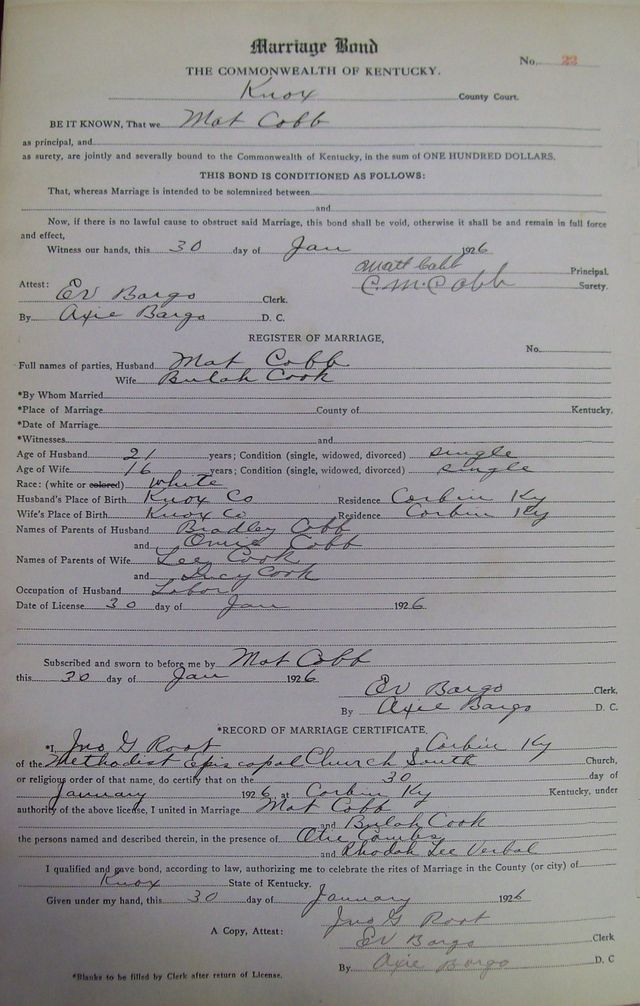 Marriage Bond
No. 22
THE COMMONWEALTH OF KENTUCKY.
Knox County Court.
BE IT KNOWN, That we Mat Cobb
as principal, and
as surety, are jointly and severally bound to the Commonwealth of Kentucky, in the sum of ONE HUNDRED DOLLARS.
THIS BOND IS CONDITIONED AS FOLLOWS:
That, whereas Marriage is intended to be solemnized between
and
Now, if there is no lawful cause to obstruct said Marriage, this bond shall be void, otherwise it shall be and remain in full force
and effect,
Witness our hands, this 30 day of Jan 1926
Matt Cobb Principal.
C. M. Cobb Surety.
Attest:
Ev Bargo Clerk.
By Axie Bargo D. C.
REGISTER OF MARRIAGE,
No.
Full names of parties, Husband Mat Cobb
Wife Bulah Cook
*By Whom Married
*Place of Marriage County of Kentucky,
*Date of Marriage
*Witnesses and
Age of Husband 21 years; Condition (single, widowed, divorced) single
Age of Wife 16 years; Condition (single, widowed, divorced) single
Race: (white or colored) White
Husband's Place of Birth Knox Co Residence Corbin Ky
Wife's Place of Birth Knox Co Residence Corbin Ky
Names of Parents of Husband Bradley Cobb
and Omie Cobb
Names of Parents of Wife Lee Cook
and Lucy Cook
Occupation of Husband Labor
Date of License 30 day of Jan 1926
Subscribed and sworn to before me by Mat Cobb
this 30 day of Jan 1926
Ev Bargo Clerk.
By Axie Bargo D. C.
*RECORD OF MARRIAGE CERTIFICATE.
*I, Jno G Root Corbin Ky
of the Methodist Episcopal Church South Church,
or religious order of that name, do certify that on the 30 day of
January 1926 at Corbin Ky Kentucky, under
authority of the above license, I united in Marriage Mat Cobb
and Bulah Cook
the persons named and described therein, in the presence of Otie Combs
and Rhodah Lee Verbal
I qualified and gave bond, according to law, authorizing me to celebrate the rites of Marriage in the County (or city) of
Knox State of Kentucky.
Given under my hand, this 30 day of January 1926
Jno G Root
A Copy, Attest: Ev Bargo Clerk
By Axie Bargo D. C
*Blanks to be filled by Clerk after return of License.